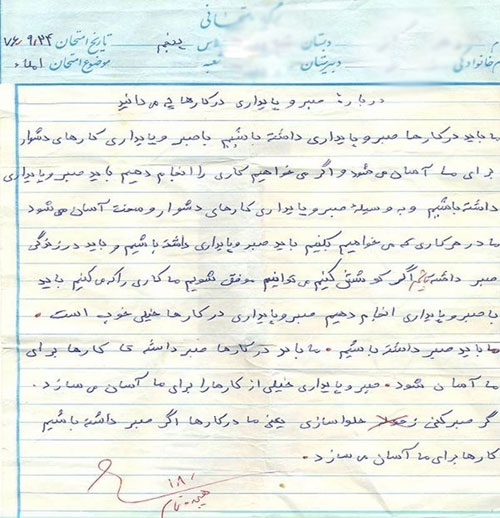 برگه امتحانی
خانوادگی دبستان دبیرستان کلاس شعبه پنجم تاریخ امتحان ۷۶/۹/۲۴
موضوع امتحان املاء
درباره صبر و پایداری در کارها چه می دانید
ما باید در کارها صبر و پایداری داشته باشیم با صبر و پایداری کارهای دشوار
برای ما آسان می شود و اگر می خواهیم کاری را انجام دهیم باید صبر و پایداری
داشته باشیم و به وسیله صبر و پایداری کارهای دشوار و سخت آسان می شود
ما در هر کاری که می خواهیم بکنیم باید صبر و پایداری داشته باشیم و باید در زندگی
صبر داشته باشیم اگر کوشش کنیم می توانیم موفق شویم ما کاری را که می کنیم باید
با صبر و پایداری انجام دهیم صبر و پایداری در کارها خیلی خوب است .
ما باید صبر داشته باشیم . ما باید در کارها صبر داشته تا کارها برای
ما آسان شود . صبر و پایداری خیلی از کارها را برای ما آسان می سازد .
گر صبر کنی ز حلوا سازی یعنی ما در کارها اگر صبر داشته باشیم
کارها برای ما آسان می سازد .
۱۸/